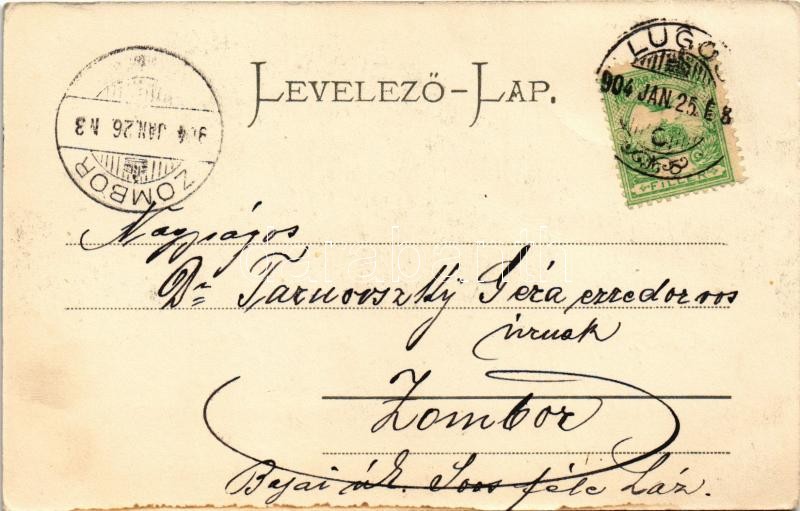 LEVELEZŐ-LAP.
ZOMBOR
904 JAN. 26 N 3
LUGOS
904 JAN. 25. É 8
C
FILLÉR
Nagyságos
Dr Tarnovszky Géza ezredorvos
úrnak
Zombor
Bajai út. Soos féle ház.